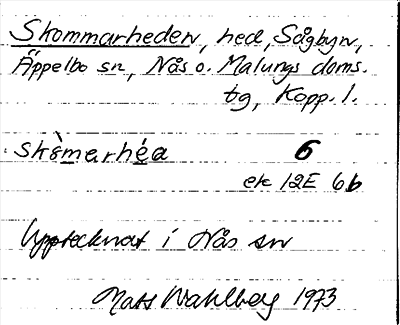 Skommarheden, hed, Sågbyn,
Äppelbo sn, Nås o. Malungs doms.
tg, Kopp. l.
skòmarhéa 6
ek 12E 6b
Upptecknat i Nås sn
Mats Wahlberg 1973